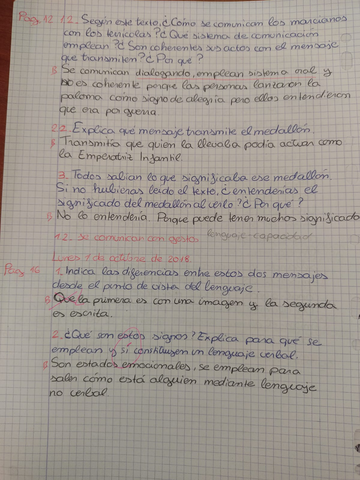 Pag. 12 1.2. Según este texto, ¿Cómo se comunican los marcianos
con los terrícolas? ¿Que sistema de comunicación
emplean? ¿Son coherentes sus actos con el mensaje
que transmiten? ¿Por que?
Se comunican dialogando, emplean sistema oral y
no es coherente porque las personas lanzaron la
paloma como signo de alegria pero ellos entendieron
que era por guerra
2.2. Explica que mensaje transmite el medallón.
Transmitia que quien la llevaba podía actuar como
la Emperatriz Infantil
3. Todos sabian lo que significaba ese medallón.
Si no hubieras leido el texto, ¿entenderias el
significado del medallón al verlo? ¿Por que?
No lo entenderia. Porque puede tener muchos significado
1.2. Se comunican con gestos lenguaje-capacidad
Lunes 1 de octubre de 2018.
Pag. 16 1. Indica las diferencias entre estos dos mensajes
desde el punto de vista del lenguaje.
Que la primera es con una imagen y la segunda
es escrita.
2. ¿Qué son estos signos? Explica para qué se
emplean y si constituyen un lenguaje verbal.
Son estados emocionales, se emplean para
saber cómo está alguien mediante lenguaje
no verbal